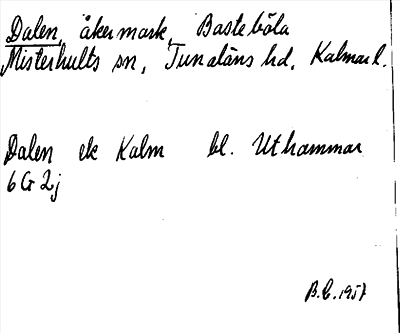 Dalen, åkermark, Basteböla
Misterhults sn, Tunaläns hd, Kalmar l.
Dalen ek Kalm bl. Uthammar
6G2j
B.L. 1957